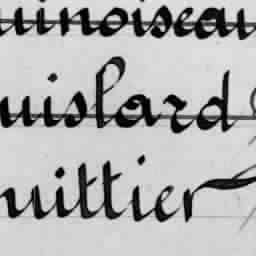 uinoiseau
uislard
uittier